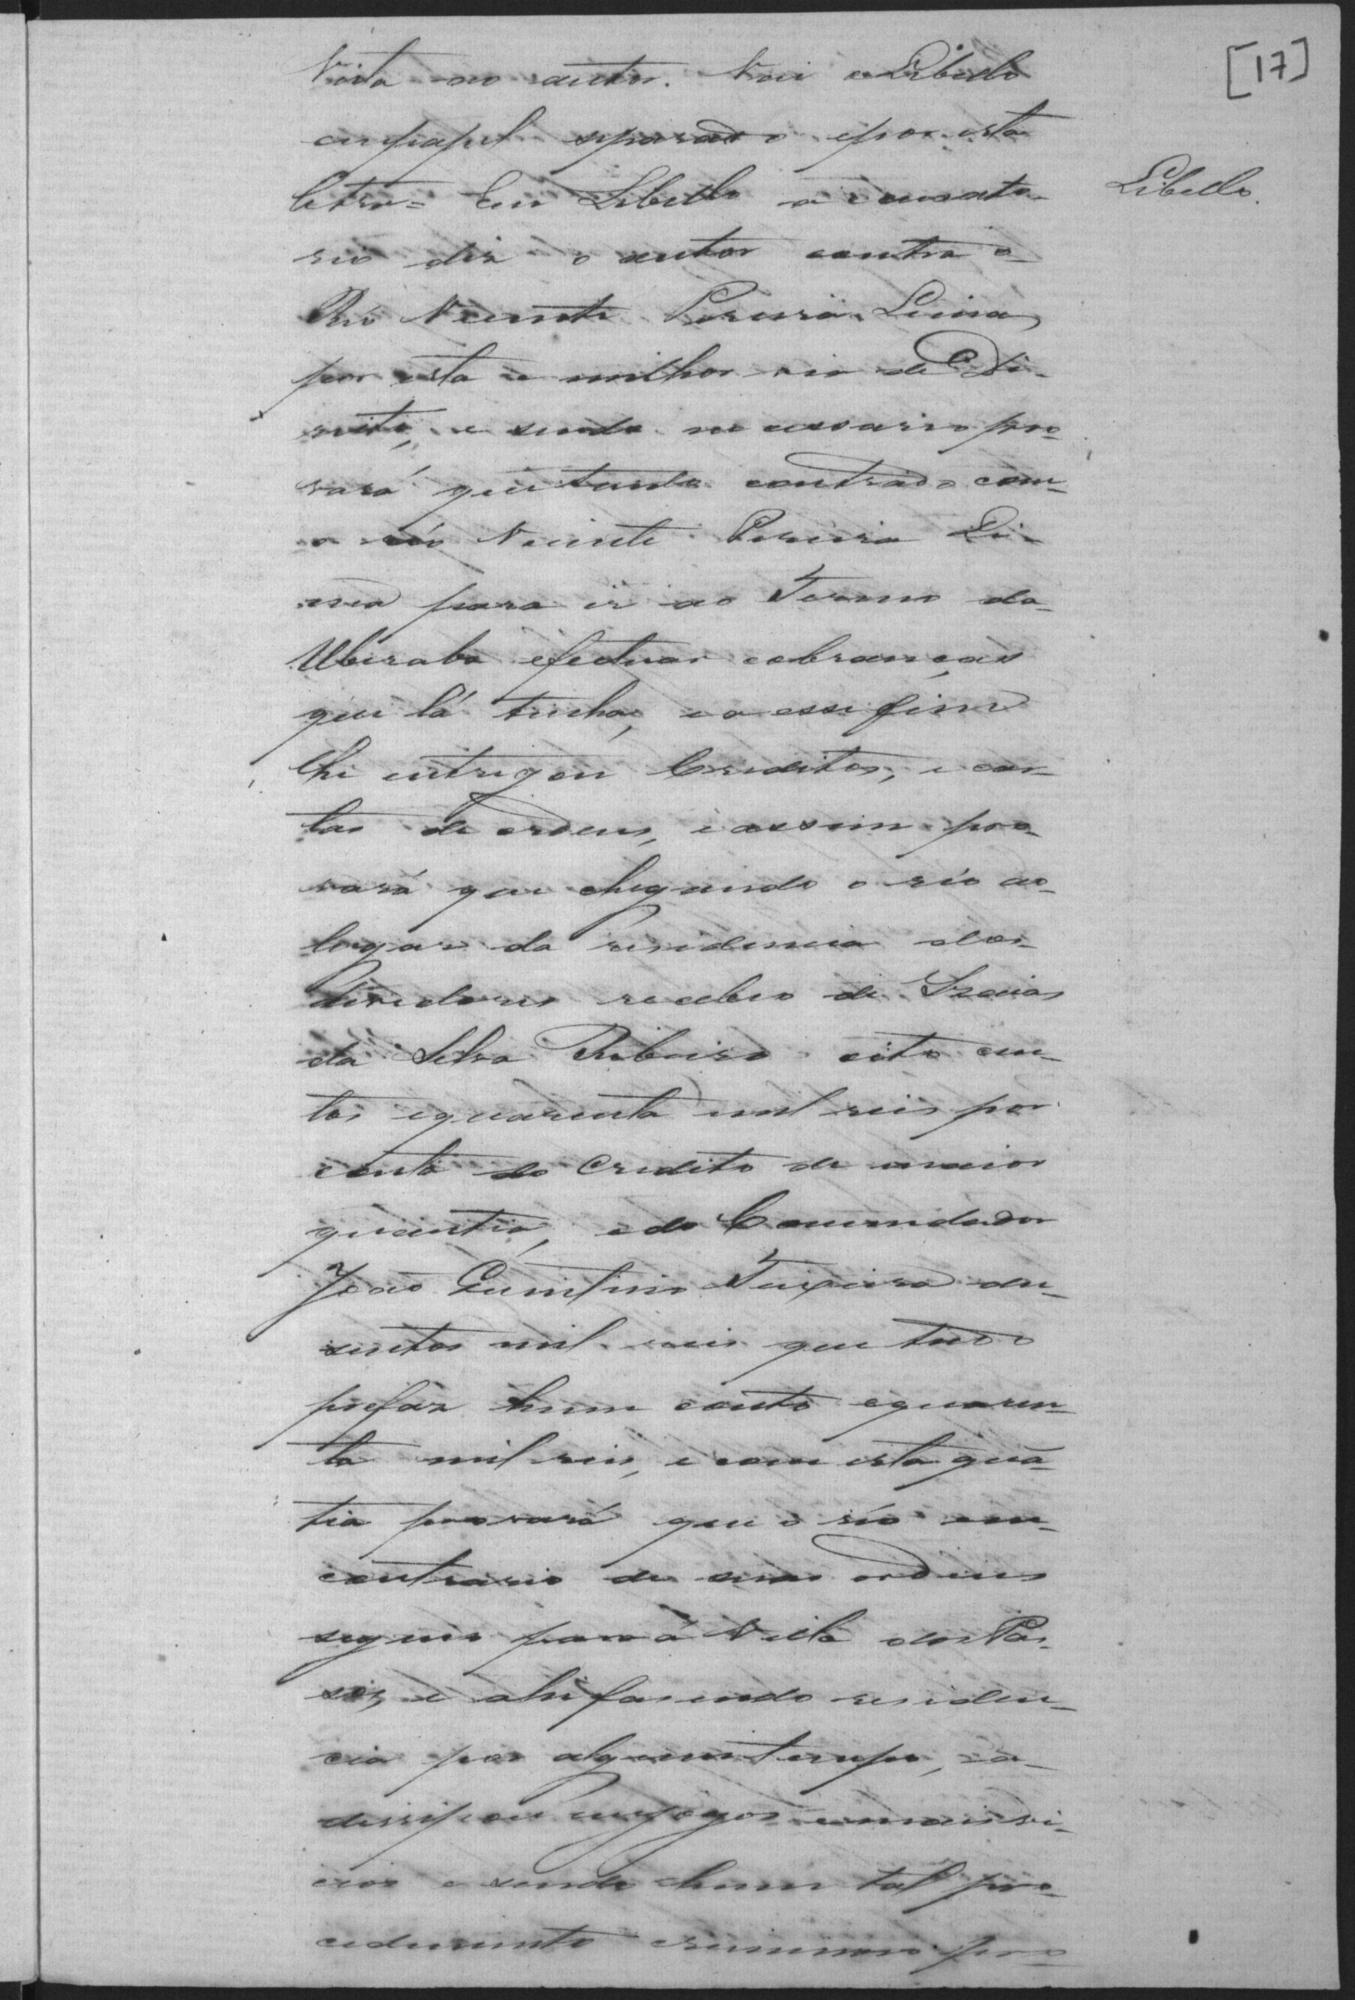 [17]
Vista ao autor. Vai o Libello
em papel separado e por esta
Libello.
letra = Em Libello accusato-
rio diz o autor contra o
Réo Vicente Pereira Lima
por esta e milhor via de Di-
reito, e sendo necessario pro-
vará que tendo contrado com
o réo Vicente Pereira Li-
ma para ir ao Termo da
Uberaba efectuar cobranças
que lá tinha, e a esse fim
lhe entregou Creditos, e car-
tas de ordens, e assim pro-
vará que chegando o réo ao
lugar da residencia dos
devedores recebeo de Izaias
da Silva Ribeiro oito cen-
tos e quarenta mil reis por
conta do Credito de maior
quantia, e do Comendador
João Quintino Teixeira du-
sentos mil reis que tudo
prefaz hum conto e quaren-
ta mil reis, e com esta quã-
tia provará que o réo em
contrario de suas ordens
seguio para a Villa dos Pas-
sos, e ahi fasendo residen-
cia por algum tempo, a
dissipou em jogos e mais vi-
cios e sendo hum tal pro-
cedimento criminoso pro